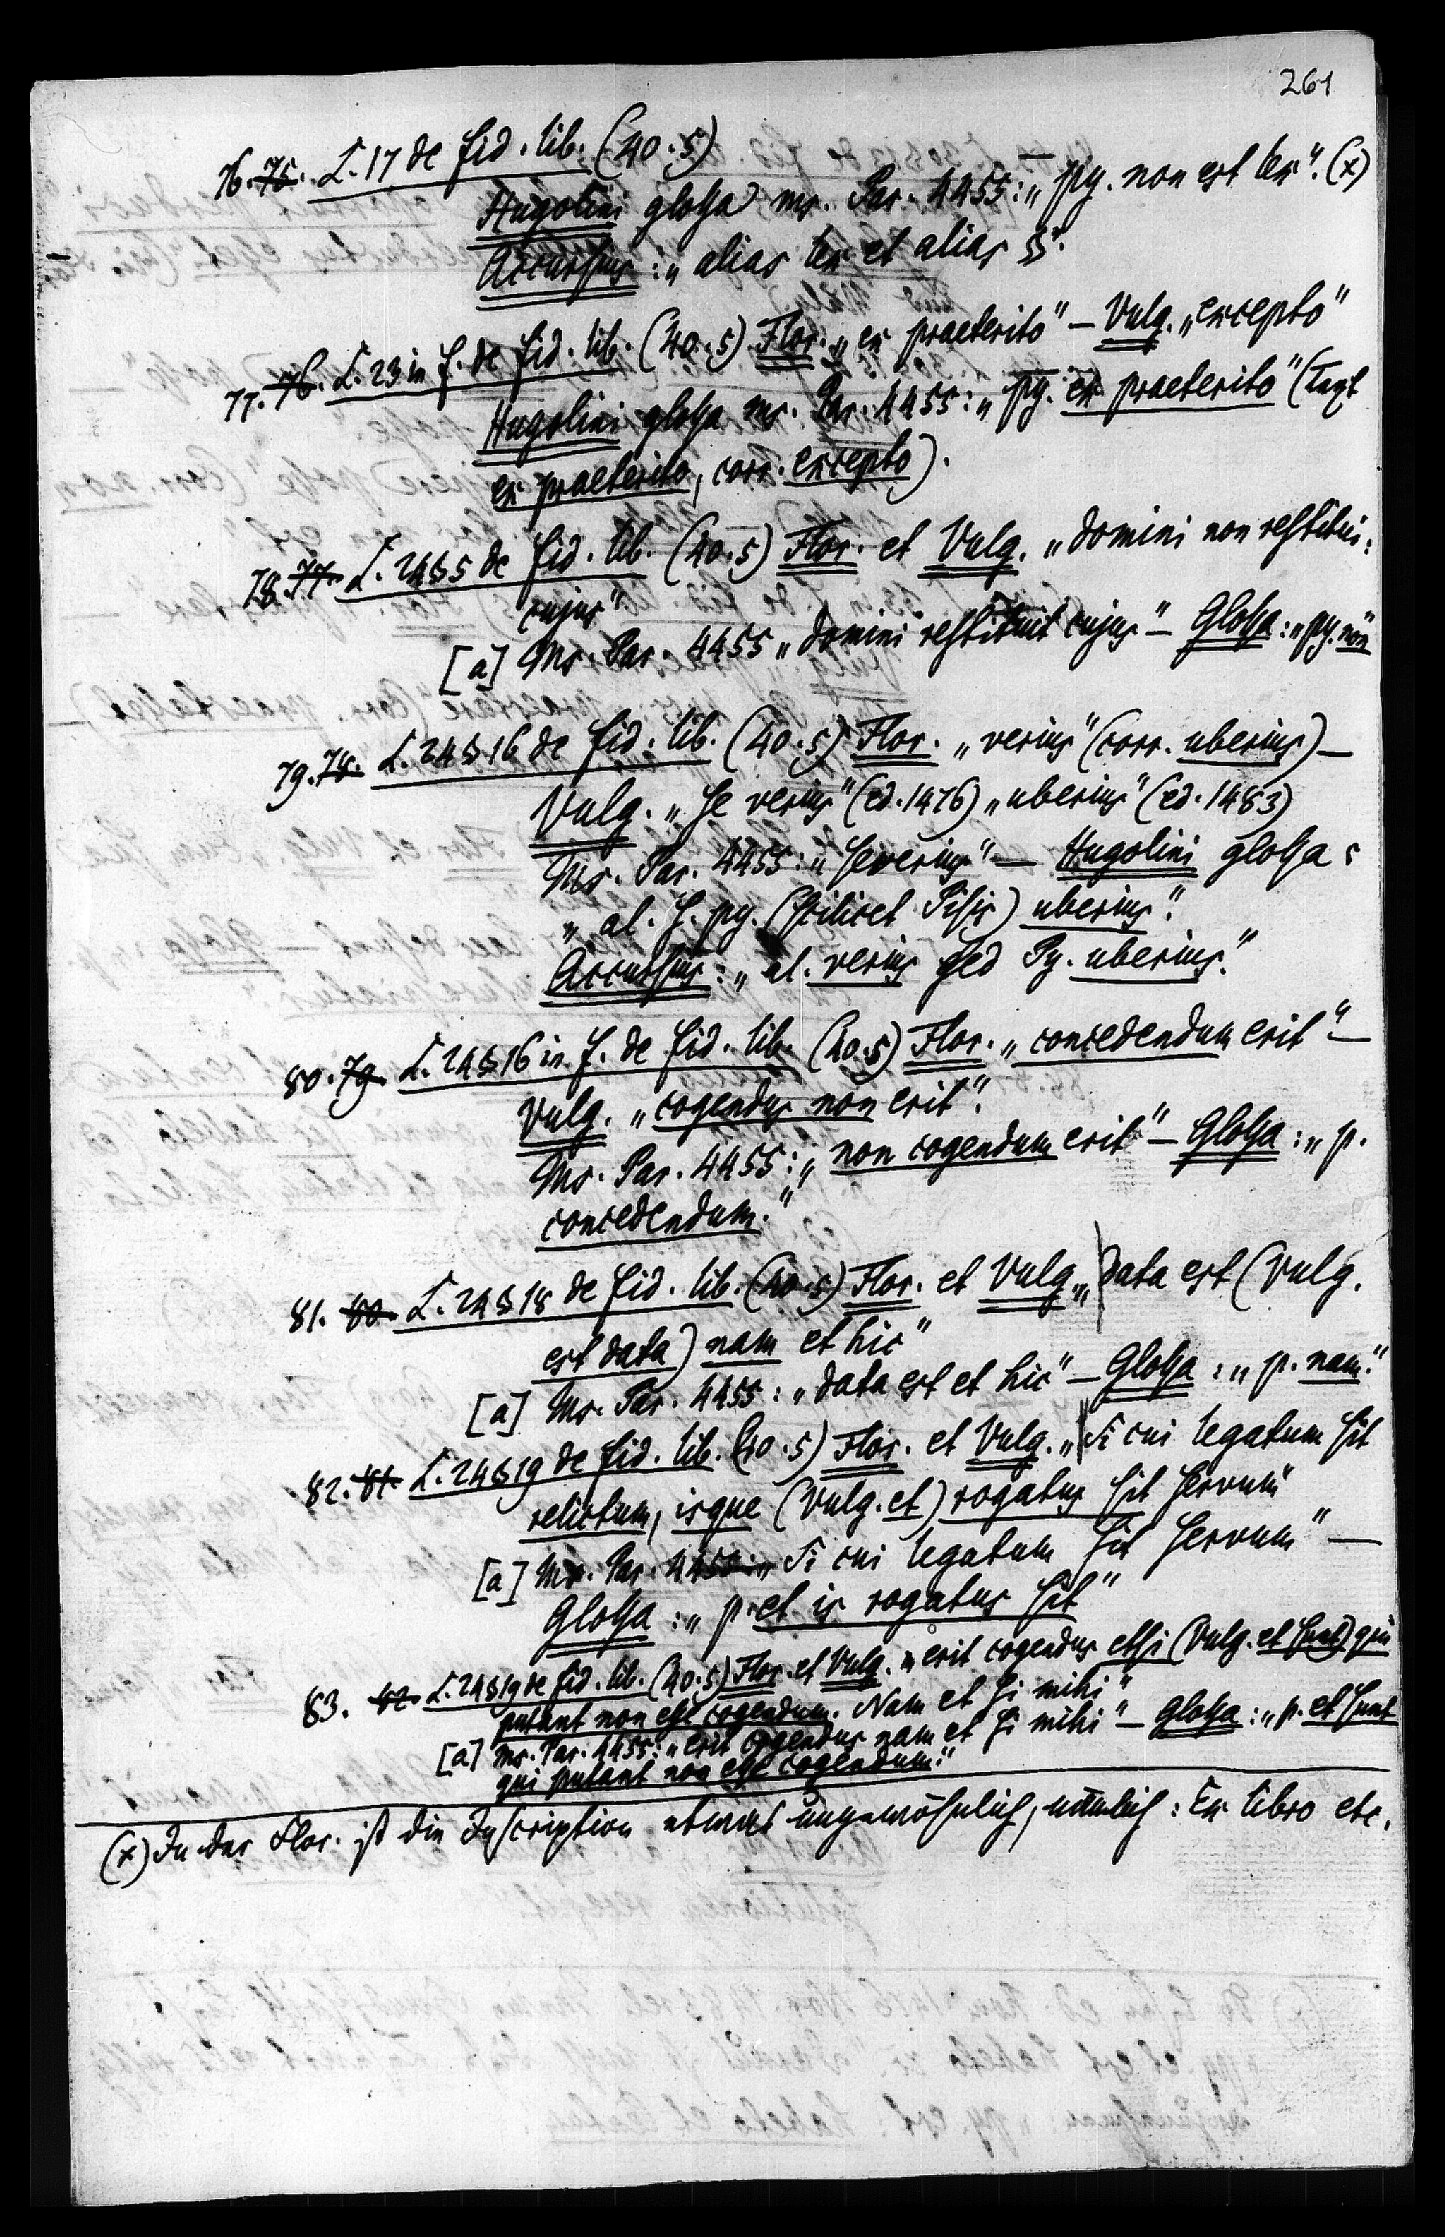 261
76. 75. L. 17 de fid. lib. (40.5)
Hugolini glossa ms. Par. 4455: „py. non est lex". (x)
Accursius: „alias lex et alias §".
77. 76. L. 23 in f. de fid. lib. (40.5) Flor. „ex praeterito" – Vulg. „excepto"
Hugolini glossa ms. Par. 4455: „py. ex praeterito" (Text
ex praeterito, corr. excepto).
78. 77. L. 24 § 5 de fid. lib. (40.5) Flor. et Vulg. „domini non restitui:
cujus"
[a] Ms. Par. 4455 „domini restituit cujus" – Glossa: „py. non"
79. 78. L. 24 § 16 de fid. lib. (40.5) Flor. „verius" (corr. uberius) –
Vulg. „se verius" (ed. 1476) „uberius" (ed. 1483)
Ms. Par. 4455: „severius" – Hugolini glossa:
„al. s. py. (scilicet Pisis) uberius".
Accursius: „al. verius sed Py. uberius."
80. 79. L. 24 § 16 in f. de fid. lib. (40.5) Flor. „concedendum erit" –
Vulg. „cogendus non erit".
Ms. Par. 4455: „non cogendum erit" – Glossa: „p.
concedendum."
81. 80. L. 24 § 18 de fid. lib. (40.5) Flor. et Vulg. „data est (Vulg.
est data) nam et hic"
[a] Ms. Par. 4455: „data est et hic" – Glossa: „p. nam."
82. 81. L. 24 § 19 de fid. lib. (40.5) Flor. et Vulg. „Si cui legatum sit
relictum, isque (Vulg. et) rogatus sit servum"
[a] Ms. Par. 4455: „Si cui legatum sit servum" –
Glossa: „p. et is rogatus sit"
83. 82. L. 24 § 19 de fid. lib. (40.5) Flor. et Vulg. „erit cogendus etsi (Vulg. et sunt) qui
putant non esse cogendum. Nam et si mihi"
[a] Ms. Par. 4455: „erit cogendus nam et si mihi" – Glossa: „p. et sunt
qui putant non esse cogendum."
(x) In der Flor. ist die Inscription etwas ungewöhnlich, nämlich: Ex libro etc.